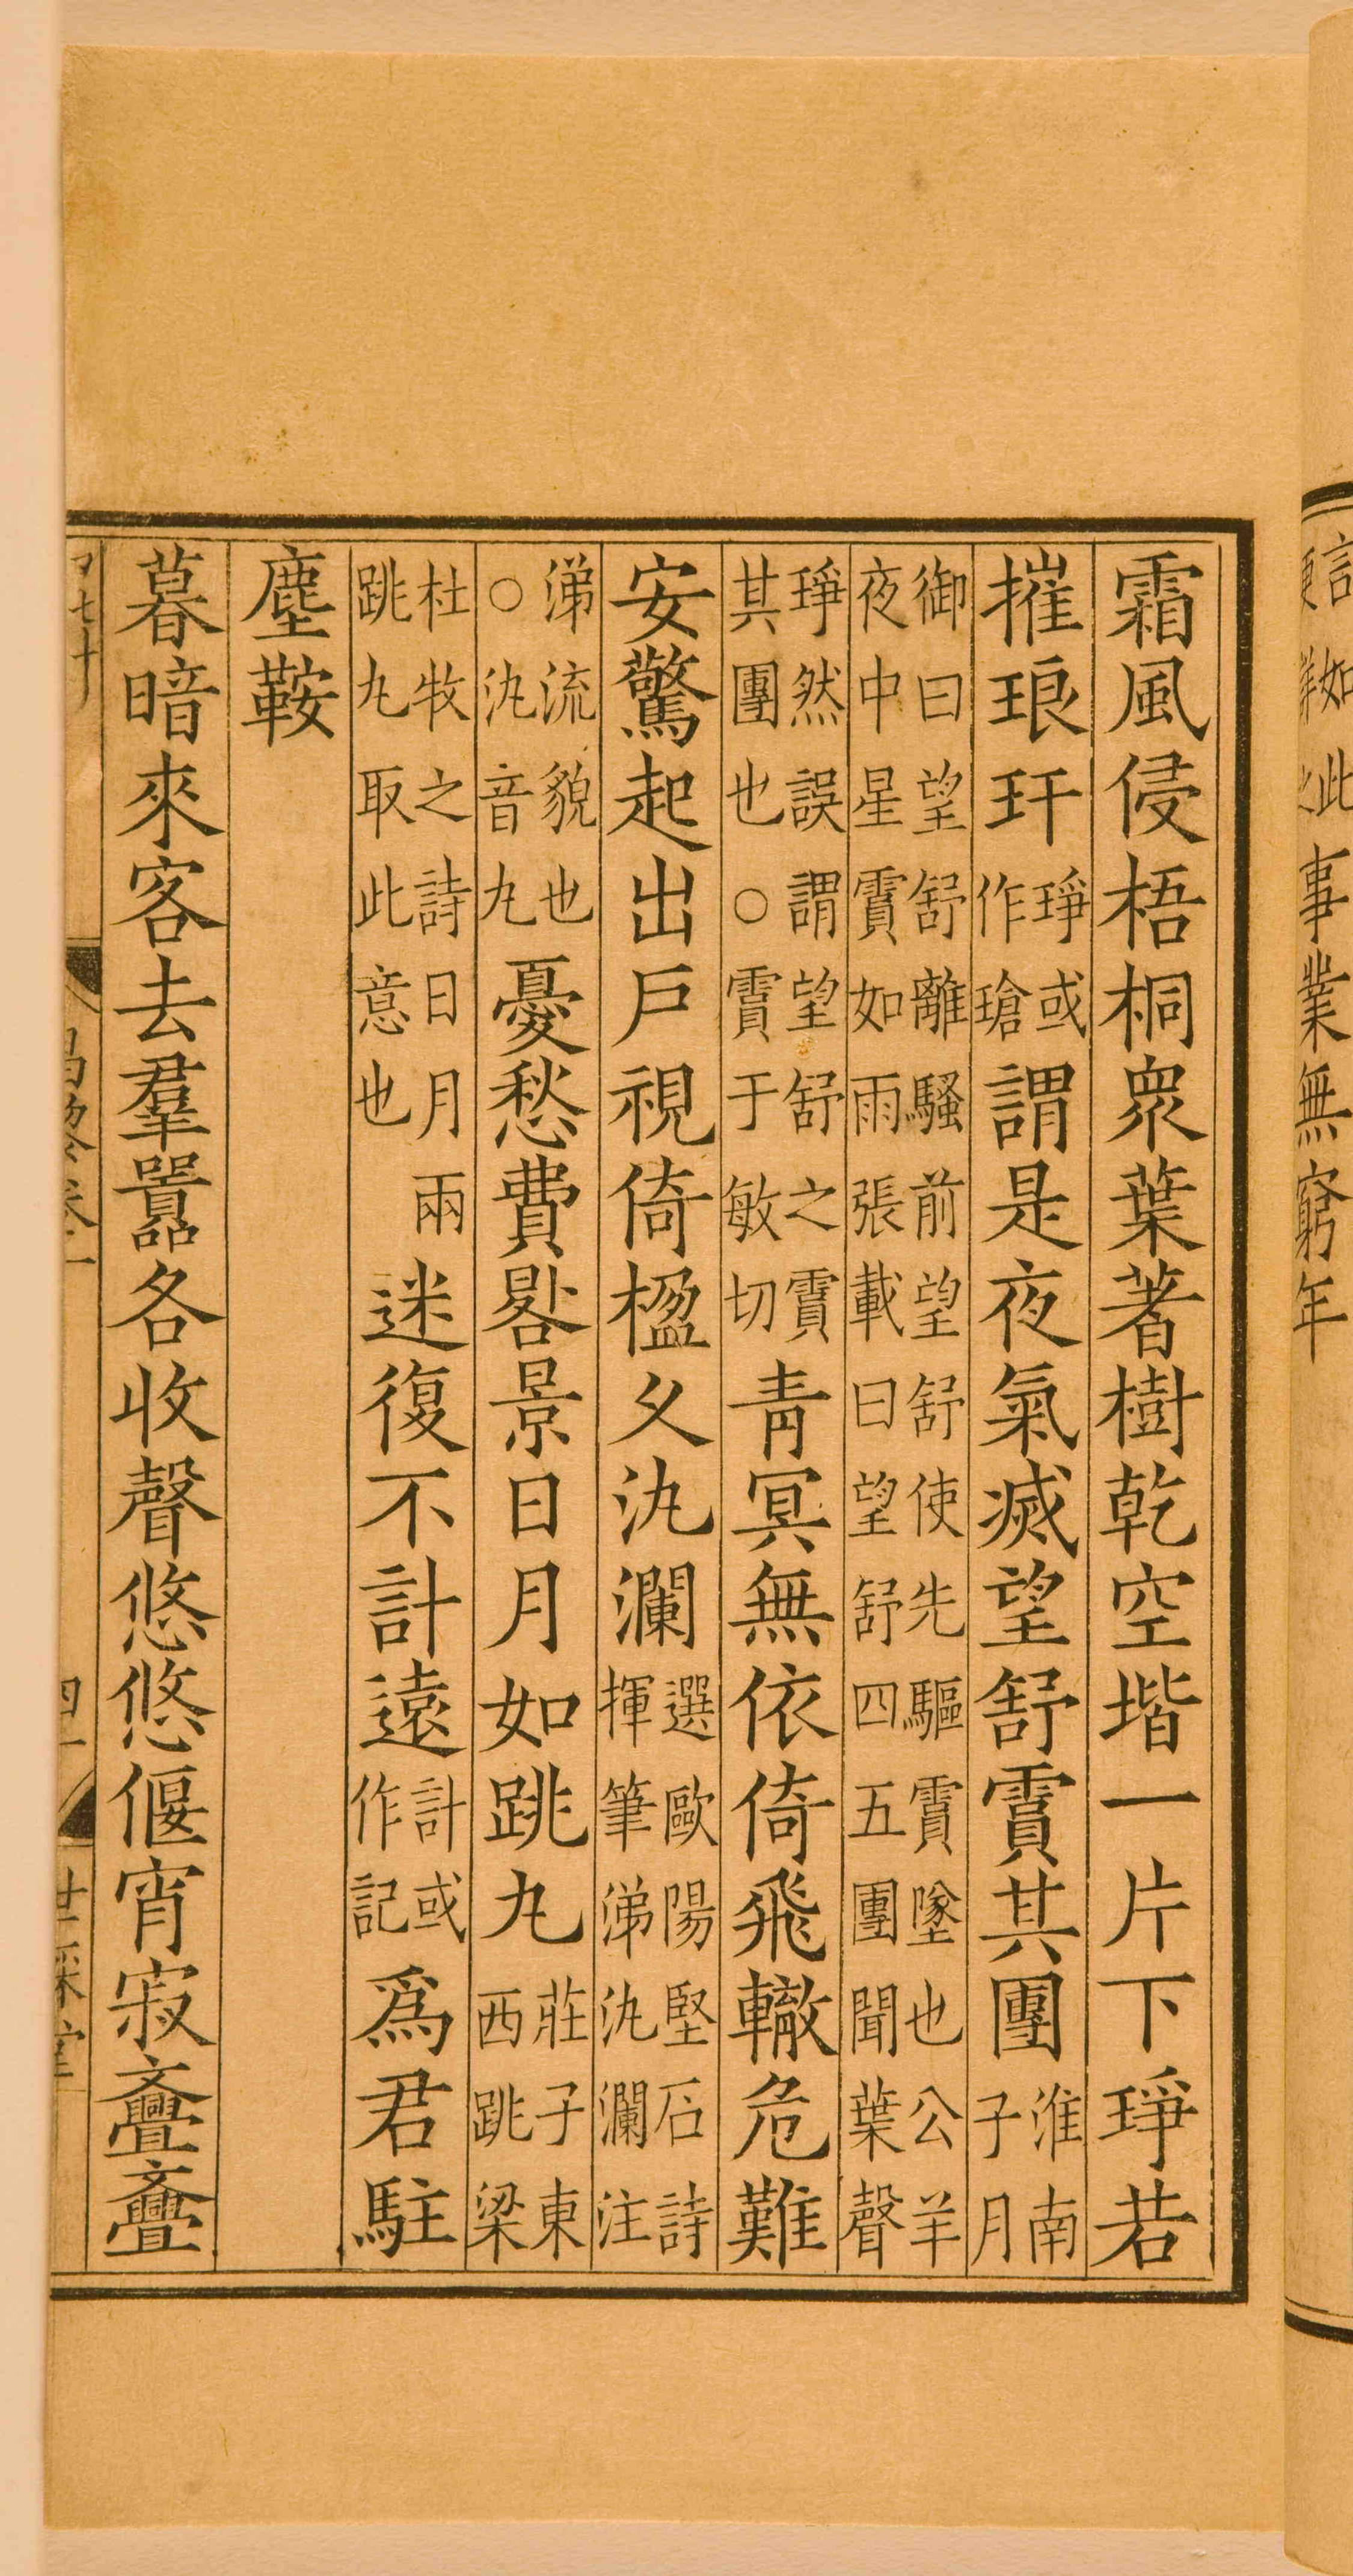 霜風侵梧桐衆葉著樹乾空堦一片下琤若
摧琅玕琤或作瑲謂是夜氣滅望舒霣其團淮南子月
御曰望舒離騷前望舒使先驅霣墜也公羊
夜中星霣如雨張載曰望舒四五團聞葉聲
琤然誤謂望舒之霣
其團也○霣于敏切青冥無依倚飛轍危難
安驚起出戶視倚楹久汍瀾選歐陽堅石詩揮筆涕汍瀾注
涕流貌也○汍音丸憂愁費晷景日月如跳丸莊子東西跳梁
杜牧之詩日月兩跳丸取此意也迷復不計遠計或作記爲君駐
塵鞍
暮暗來客去羣囂各收聲悠悠偃宵寂亹亹
事業無窮年